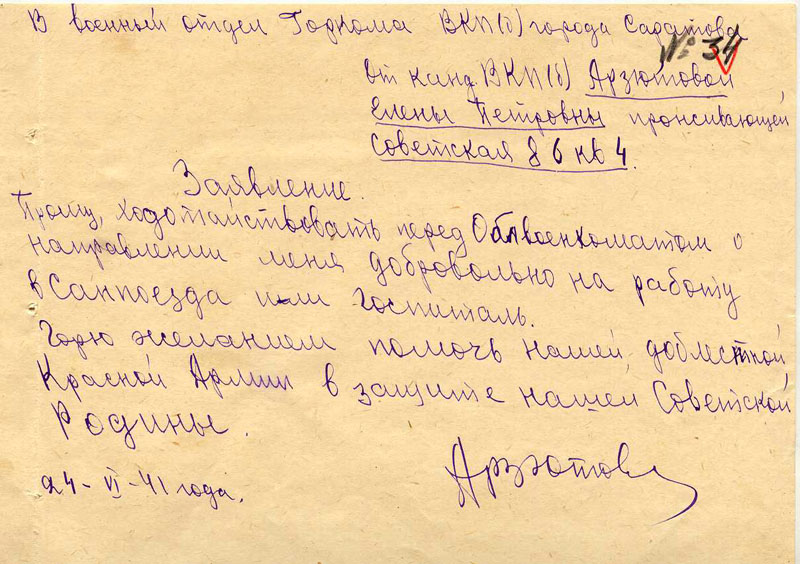 В военный отдел Горкома ВКП(б) города Саратова
№ 34
от канд ВКП(б) Арзютовой
Елены Петровны проживающей
Советская д 6 кв 4.
Заявление.
Прошу, ходотайствовать перед Облвоенкоматом о
направлении меня добровольно на работу
в Санпоезда или госпиталь.
Горю желанием помочь нашей доблестной
Красной Армии в защите нашей Советской
Родины.
24-VI-41 года.
Арзютова